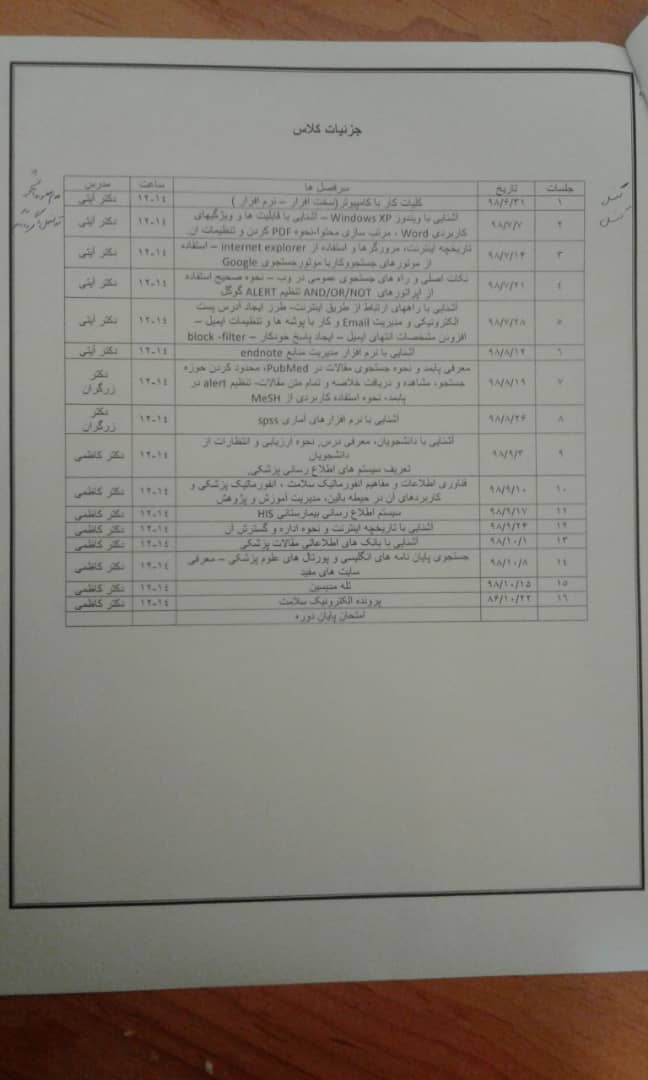 جزئیات کلاس
جلسات تاریخ سرفصل ها ساعت مدرس
۱ ۹۸/۶/۳۱ کلیات کار با کامپیوتر(سخت افزار – نرم افزار ) ۱۲-۱٤ دکتر آیتی
۲ ۹۸/۷/۷ آشنایی با ویندوز Windows XP – آشنایی با قابلیت ها و ویژگیهای ۱۲-۱٤ دکتر آیتی
کاربردی Word ، مرتب سازی محتوا-نحوه PDF کردن و تنظیمات ان.
۳ ۹۸/۷/۱۴ تاریخچه اینترنت، مرورگرها و استفاده از internet explorer – استفاده ۱۲-۱٤ دکتر آیتی
از موتورهای جستجووکاربا موتورجستجوی Google
٤ ۹۸/۷/۲۱ نکات اصلی و راه های جستجوی عمومی در وب – نحوه صحیح استفاده ۱۲-۱٤ دکتر آیتی
از اپراتورهای AND/OR/NOT تنظیم ALERT گوگل
۵ ۹۸/۷/۲۸ آشنایی با راههای ارتباط از طریق اینترنت- طرز ایجاد آدرس پست ۱۲-۱٤ دکتر آیتی
الکترونیکی و مدیریت Email و کار با پوشه ها و تنظیمات ایمیل –
افزودن مشخصات انتهای ایمیل – ایجاد پاسخ خودکار – block -filter
٦ ۹۸/۸/۱۲ آشنایی با نرم افزار مدیریت منابع endnote ۱۲-۱٤ دکتر آیتی
۷ ۹۸/۸/۱۹ معرفی پابمد و نحوه جستجوی مقالات در PubMed، محدود کردن حوزه ۱۲-۱٤ دکتر زرگران
جستجو، مشاهده و دریافت خلاصه و تمام متن مقالات- تنظیم alert در
پابمد، نحوه استفاده کاربردی از MeSH
۸ ۹۸/۸/۲۶ آشنایی با نرم افزارهای آماری spss ۱۲-۱٤ دکتر زرگران
۹ ۹۸/۹/۳ آشنایی با دانشجویان، معرفی درس، نحوه ارزیابی و انتظارات از ۱۲-۱٤ دکتر کاظمی
دانشجویان
تعریف سیستم های اطلاع رسانی پزشکی.
۱۰ ۹۸/۹/۱۰ فناوری اطلاعات و مفاهیم انفورماتیک سلامت ، انفورماتیک پزشکی و ۱۲-۱٤ دکتر کاظمی
کاربردهای آن در حیطه بالین، مدیریت آموزش و پژوهش
۱۱ ۹۸/۹/۱۷ سیستم اطلاع رسانی بیمارستانی HIS ۱۲-۱٤ دکتر کاظمی
۱۲ ۹۸/۹/۲۴ آشنایی با تاریخچه اینترنت و نحوه اداره و گسترش آن ۱۲-۱٤ دکتر کاظمی
۱۳ ۹۸/۱۰/۱ آشنایی با بانک های اطلاعاتی مقالات پزشکی ۱۲-۱٤ دکتر کاظمی
۱٤ ۹۸/۱۰/۸ جستجوی پایان نامه های انگلیسی و پورتال های علوم پزشکی – معرفی ۱۲-۱٤ دکتر کاظمی
سایت های مفید
۱۵ ۹۸/۱۰/۱۵ تله مدیسین ۱۲-۱٤ دکتر کاظمی
۱٦ ۸۶/۱۰/۲۲ پرونده الکترونیک سلامت ۱۲-۱٤ دکتر کاظمی
امتحان پایان دوره